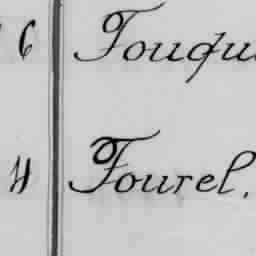 6 Fouqu
4 Fourel.